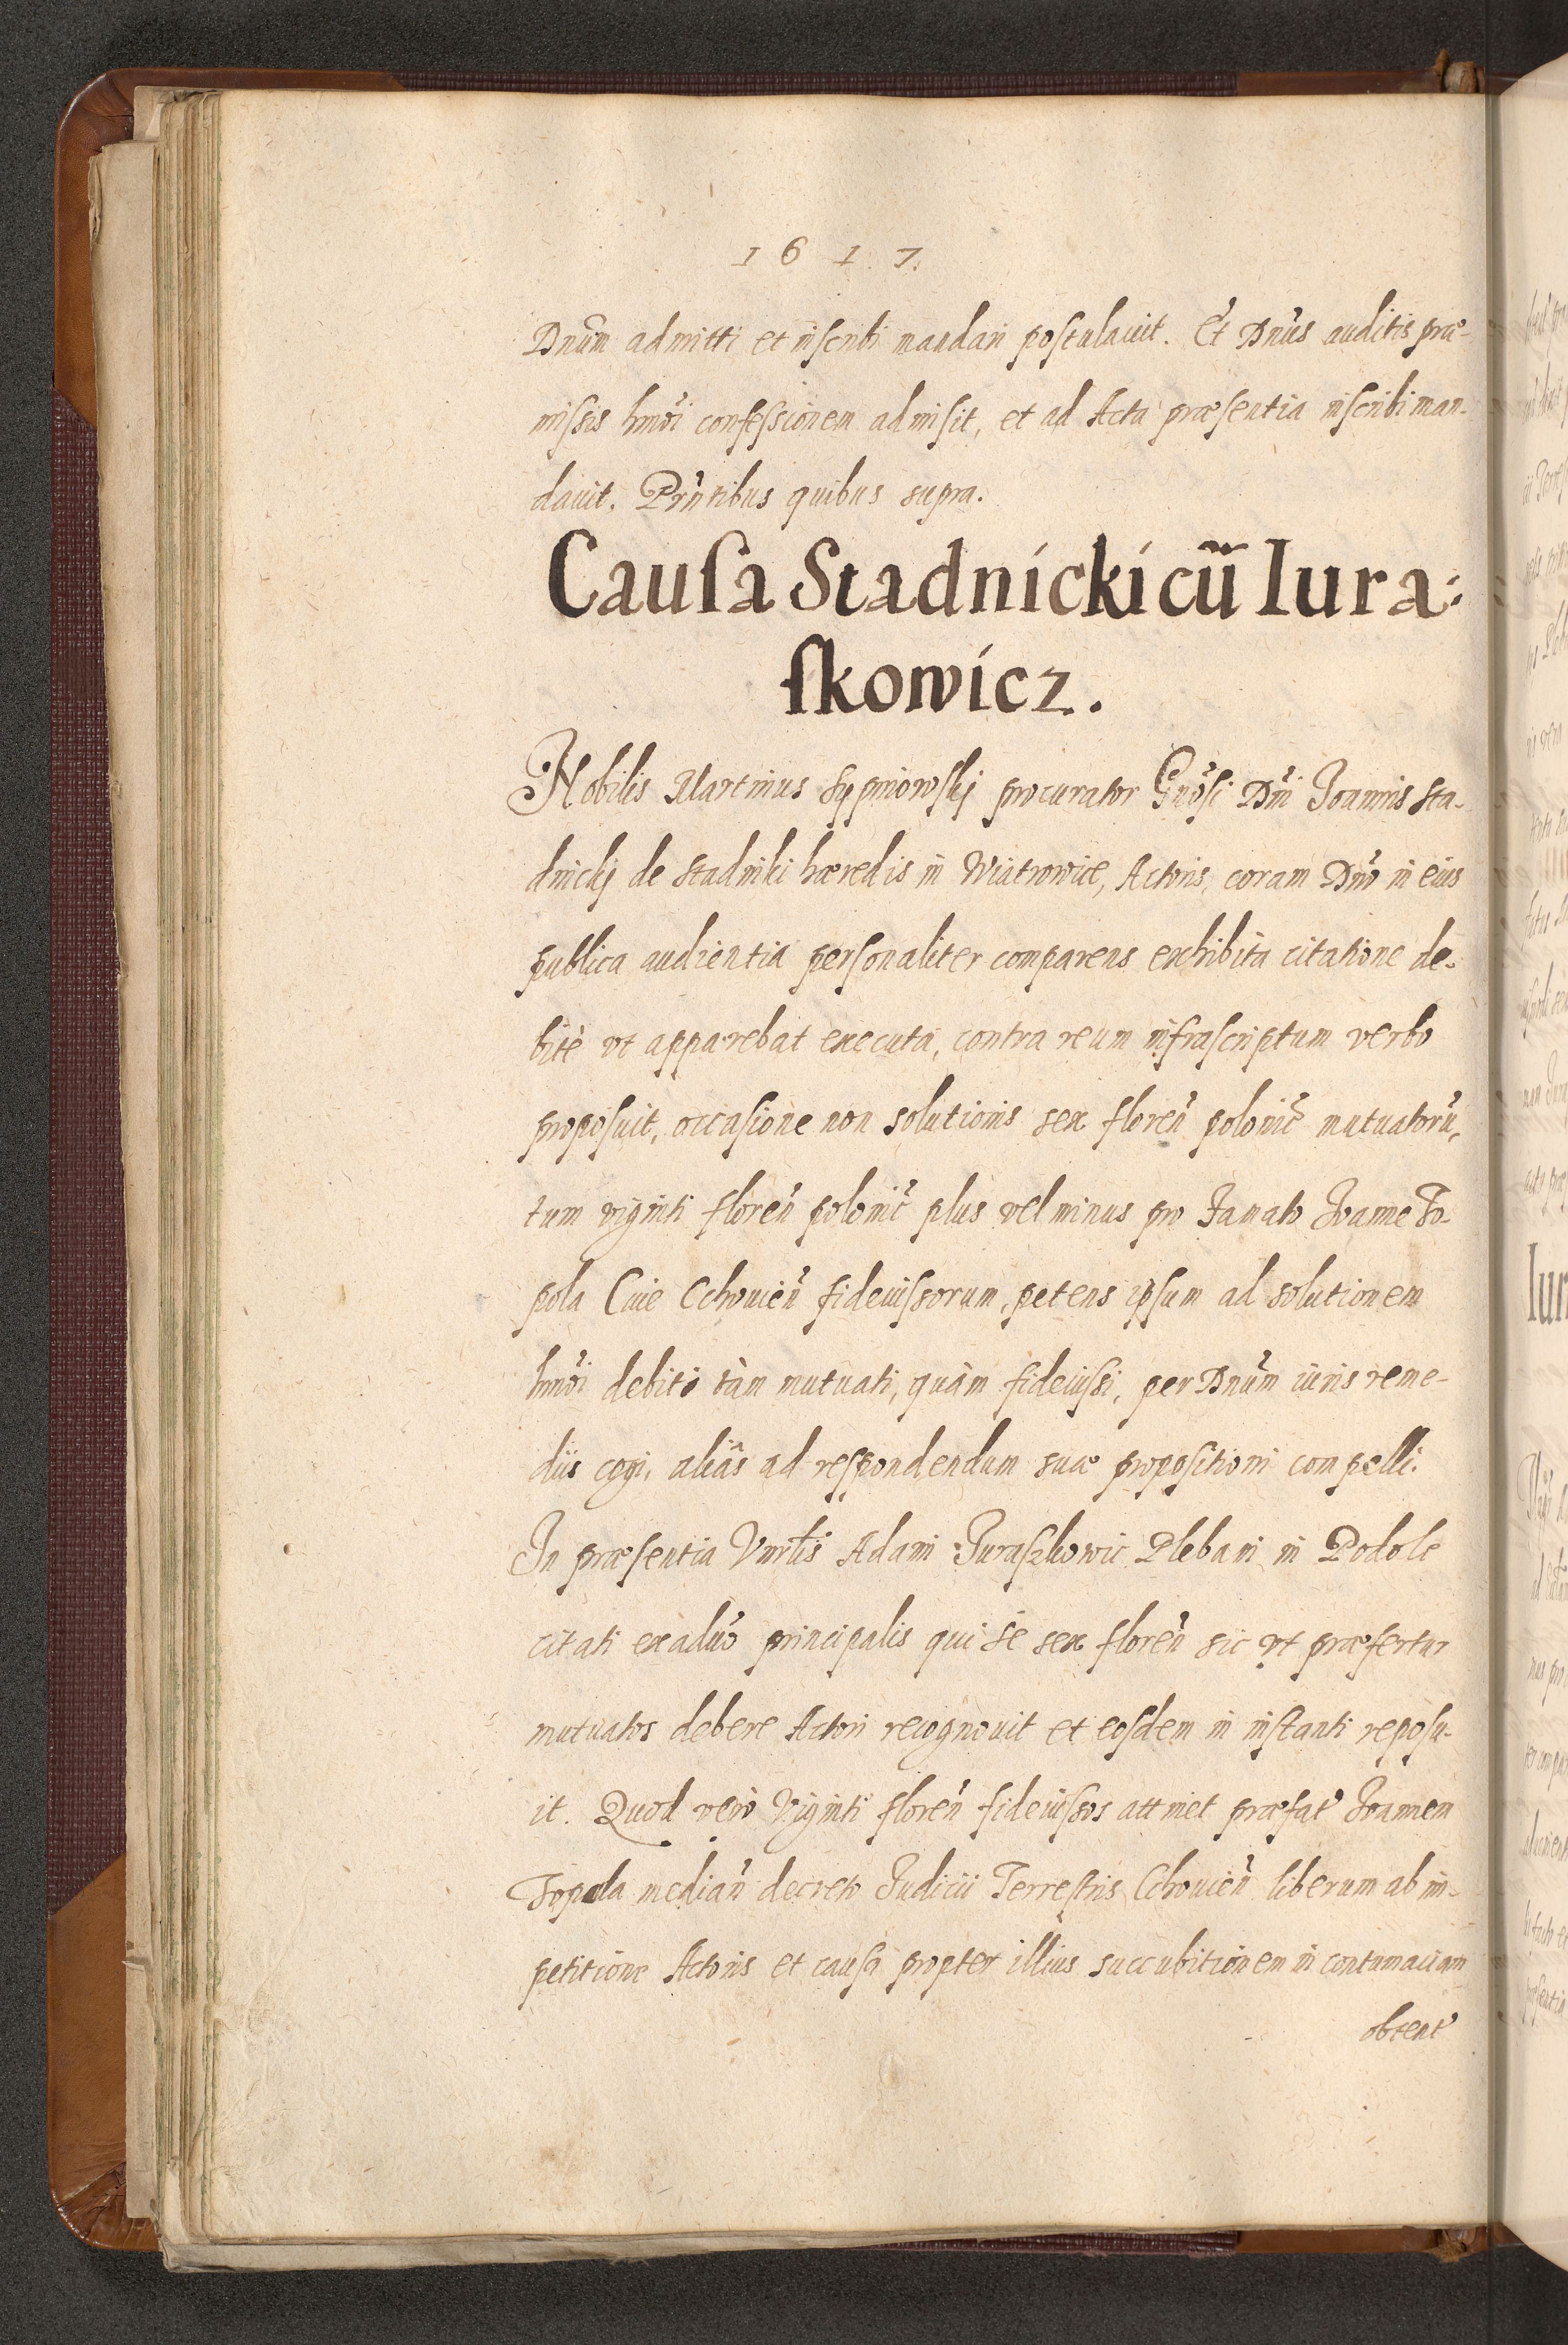 1617.
Dnum admitti et inscribi mandari postulauit. Et Dnus auditis præ-
missis hmoi confessionem admisit, et ad Acta præsentia inscribi man-
dauit. Prntibus quibus supra.
Causa Stadnicki cū Iura:
skowicz.
Nobilis Martinus Sypniowskj procurator Gnosi Dni Joannis Sta-
dnickj de Stadniki hæredis in Wiatrowice, Actoris, coram Dno in eius
publica audientia personaliter comparens exhibita citatione de-
bitè vt apparebat executa, contra reum infrascriptum verbo
proposuit, occasione non solutionis sex floren polonic mutuatoru,
tum viginti floren polonic plus vel minus pro Famato Joanne To-
pola Ciue Cchouien fideiussorum, petens ipsum ad solutionem
hmoi debiti tàm mutuati, quàm fideiussi, per Dnum iuris reme-
diis cogi, aliâs ad respondendum suæ propositioni compelli.
In præsentia Vnrlis Adami Juraszkowic Plebani in Podole
citati ex aduo principalis qui se sex floren sic vt præfertur
mutuatos debere Actori recognouit et eosdem in instanti reposu-
it. Quod vero Viginti floren fideiussos attinet præfat Joannem
Topola median decreto Judicii Terrestris Cchouien liberum ab im-
petitione Actoris et causa propter illius succubitionem in contumaciam
obtent